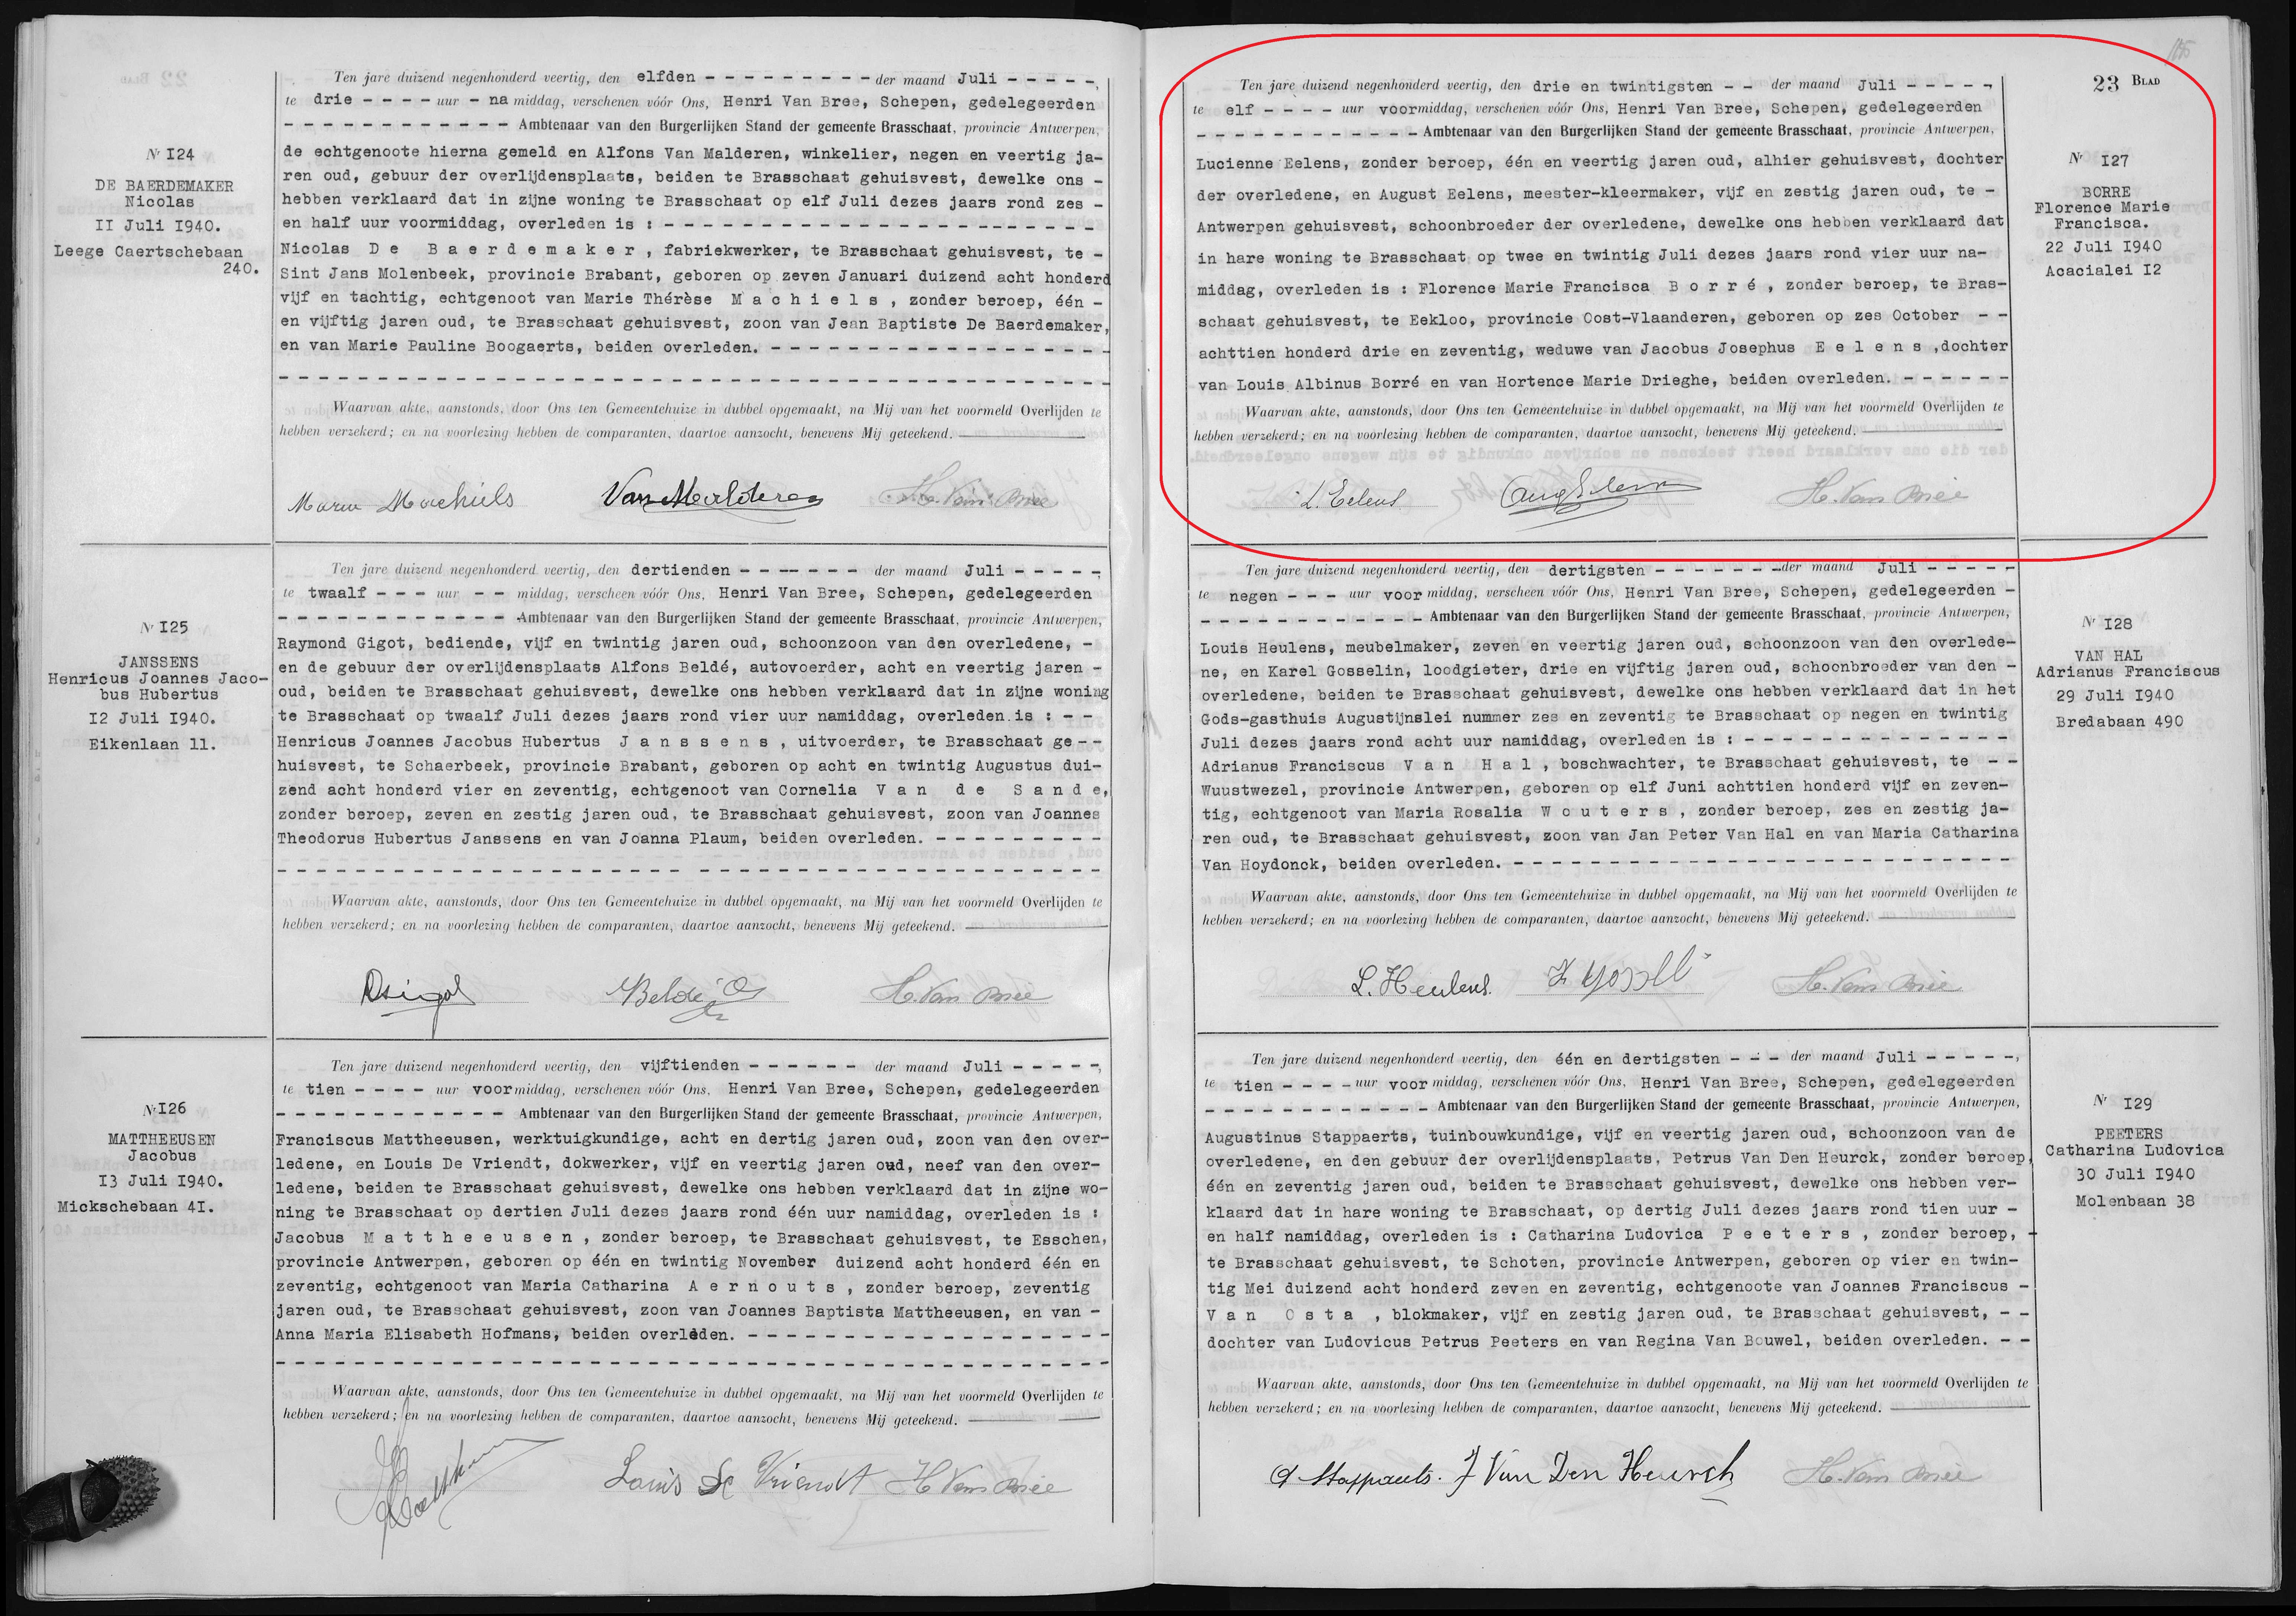 Ten jare duizend negenhonderd veertig, den elfden - - - - - - - - - der maand Juli - - - - -,
te drie - - - - uur - na middag, verschenen vóór Ons, Henri Van Bree, Schepen, gedelegeerden
- - - - - - - - - - - - Ambtenaar van den Burgerlijken Stand der gemeente Brasschaat, provincie Antwerpen,
Nr I24
DE BAERDEMAKER
Nicolas
II Juli I940.
Leege Caertschebaan
240.
de echtgenoote hierna gemeld en Alfons Van Malderen, winkelier, negen en veertig ja-
ren oud, gebuur der overlijdensplaats, beiden te Brasschaat gehuisvest, dewelke ons -
hebben verklaard dat in zijne woning te Brasschaat op elf Juli dezes jaars rond zes -
en half uur voormiddag, overleden is : - - - - - - - - - - - - - - - - - - - - - - -
Nicolas D e   B a e r d e m a k e r , fabriekwerker, te Brasschaat gehuisvest, te -
Sint Jans Molenbeek, provincie Brabant, geboren op zeven Januari duizend acht honderd
vijf en tachtig, echtgenoot van Marie Thérèse M a c h i e l s , zonder beroep, één -
en vijftig jaren oud, te Brasschaat gehuisvest, zoon van Jean Baptiste De Baerdemaker,
en van Marie Pauline Boogaerts, beiden overleden. - - - - - - - - - - - - - - - - - -
Waarvan akte, aanstonds, door Ons ten Gemeentehuize in dubbel opgemaakt, na Mij van het voormeld Overlijden te
hebben verzekerd; en na voorlezing hebben de comparanten, daartoe aanzocht, benevens Mij geteekend.
Maria Machiels Van Malderen H. Van Bree
Ten jare duizend negenhonderd veertig, den dertienden - - - - - - - der maand Juli - - - - -,
te twaalf - - - uur - - middag, verscheen vóór Ons, Henri Van Bree, Schepen, gedelegeerden
- - - - - - - - - - - - Ambtenaar van den Burgerlijken Stand der gemeente Brasschaat, provincie Antwerpen,
Nr I25
JANSSENS
Henricus Joannes Jaco-
bus Hubertus
I2 Juli I940.
Eikenlaan 11.
Raymond Gigot, bediende, vijf en twintig jaren oud, schoonzoon van den overledene, -
en de gebuur der overlijdensplaats Alfons Beldé, autovoerder, acht en veertig jaren -
oud, beiden te Brasschaat gehuisvest, dewelke ons hebben verklaard dat in zijne woning
te Brasschaat op twaalf Juli dezes jaars rond vier uur namiddag, overleden is : - -
Henricus Joannes Jacobus Hubertus J a n s s e n s , uitvoerder, te Brasschaat ge--
huisvest, te Schaerbeek, provincie Brabant, geboren op acht en twintig Augustus dui-
zend acht honderd vier en zeventig, echtgenoot van Cornelia V a n   d e   S a n d e,
zonder beroep, zeven en zestig jaren oud, te Brasschaat gehuisvest, zoon van Joannes
Theodorus Hubertus Janssens en van Joanna Plaum, beiden overleden. - - - - - - - - - -
Waarvan akte, aanstonds, door Ons ten Gemeentehuize in dubbel opgemaakt, na Mij van het voormeld Overlijden te
hebben verzekerd; en na voorlezing hebben de comparanten, daartoe aanzocht, benevens Mij geteekend.
Beldé H. Van Bree
Ten jare duizend negenhonderd veertig, den vijftienden - - - - - - der maand Juli - - - - -,
te tien - - - - uur voormiddag, verschenen vóór Ons, Henri Van Bree, Schepen, gedelegeerden
- - - - - - - - - - - - Ambtenaar van den Burgerlijken Stand der gemeente Brasschaat, provincie Antwerpen,
Nr I26
MATTHEEUSEN
Jacobus
I3 Juli I940.
Mickschebaan 4I.
Franciscus Mattheeusen, werktuigkundige, acht en dertig jaren oud, zoon van den over-
ledene, en Louis De Vriendt, dokwerker, vijf en veertig jaren oud, neef van den over-
ledene, beiden te Brasschaat gehuisvest, dewelke ons hebben verklaard dat in zijne wo-
ning te Brasschaat op dertien Juli dezes jaars rond één uur namiddag, overleden is :
Jacobus M a t t h e e u s e n , zonder beroep, te Brasschaat gehuisvest, te Esschen,
provincie Antwerpen, geboren op één en twintig November duizend acht honderd één en
zeventig, echtgenoot van Maria Catharina A e r n o u t s , zonder beroep, zeventig
jaren oud, te Brasschaat gehuisvest, zoon van Joannes Baptista Mattheeusen, en van -
Anna Maria Elisabeth Hofmans, beiden overleden. - - - - - - - - - - - - - - - - - - -
Waarvan akte, aanstonds, door Ons ten Gemeentehuize in dubbel opgemaakt, na Mij van het voormeld Overlijden te
hebben verzekerd; en na voorlezing hebben de comparanten, daartoe aanzocht, benevens Mij geteekend.
Louis De Vriendt H. Van Bree
23 BLAD
Ten jare duizend negenhonderd veertig, den drie en twintigsten - - der maand Juli - - - - -,
te elf - - - - uur voormiddag, verschenen vóór Ons, Henri Van Bree, Schepen, gedelegeerden
- - - - - - - - - - - - Ambtenaar van den Burgerlijken Stand der gemeente Brasschaat, provincie Antwerpen,
Nr I27
BORRE
Florence Marie
Francisca.
22 Juli I940
Acacialei I2
Lucienne Eelens, zonder beroep, één en veertig jaren oud, alhier gehuisvest, dochter
der overledene, en August Eelens, meester-kleermaker, vijf en zestig jaren oud, te -
Antwerpen gehuisvest, schoonbroeder der overledene, dewelke ons hebben verklaard dat
in hare woning te Brasschaat op twee en twintig Juli dezes jaars rond vier uur na-
middag, overleden is : Florence Marie Francisca B o r r é , zonder beroep, te Bras-
schaat gehuisvest, te Eekloo, provincie Oost-Vlaanderen, geboren op zes October - -
achttien honderd drie en zeventig, weduwe van Jacobus Josephus E e l e n s ,dochter
van Louis Albinus Borré en van Hortence Marie Drieghe, beiden overleden. - - - - - -
Waarvan akte, aanstonds, door Ons ten Gemeentehuize in dubbel opgemaakt, na Mij van het voormeld Overlijden te
hebben verzekerd; en na voorlezing hebben de comparanten, daartoe aanzocht, benevens Mij geteekend.
L. Eelens Aug Eelens H. Van Bree
Ten jare duizend negenhonderd veertig, den dertigsten - - - - - - - der maand Juli - - - - -
te negen - - - uur voor middag, verscheen vóór Ons, Henri Van Bree, Schepen, gedelegeerden -
- - - - - - - - - - - - Ambtenaar van den Burgerlijken Stand der gemeente Brasschaat, provincie Antwerpen,
Nr I28
VAN HAL
Adrianus Franciscus
29 Juli I940
Bredabaan 490
Louis Heulens, meubelmaker, zeven en veertig jaren oud, schoonzoon van den overlede-
ne, en Karel Gosselin, loodgieter, drie en vijftig jaren oud, schoonbroeder van den -
overledene, beiden te Brasschaat gehuisvest, dewelke ons hebben verklaard dat in het
Gods-gasthuis Augustijnslei nummer zes en zeventig te Brasschaat op negen en twintig
Juli dezes jaars rond acht uur namiddag, overleden is : - - - - - - - - - - - - - -
Adrianus Franciscus V a n   H a l , boschwachter, te Brasschaat gehuisvest, te - -
Wuustwezel, provincie Antwerpen, geboren op elf Juni achttien honderd vijf en zeven-
tig, echtgenoot van Maria Rosalia W o u t e r s , zonder beroep, zes en zestig ja-
ren oud, te Brasschaat gehuisvest, zoon van Jan Peter Van Hal en van Maria Catharina
Van Hoydonck, beiden overleden. - - - - - - - - - - - - - - - - - - - - - - - - - -
Waarvan akte, aanstonds, door Ons ten Gemeentehuize in dubbel opgemaakt, na Mij van het voormeld Overlijden te
hebben verzekerd; en na voorlezing hebben de comparanten, daartoe aanzocht, benevens Mij geteekend.
L. Heulens. H. Van Bree
Ten jare duizend negenhonderd veertig, den één en dertigsten - - - der maand Juli - - - - -,
te tien - - - - uur voor middag, verschenen vóór Ons, Henri Van Bree, Schepen, gedelegeerden
- - - - - - - - - - - - Ambtenaar van den Burgerlijken Stand der gemeente Brasschaat, provincie Antwerpen,
Nr I29
PEETERS
Catharina Ludovica
30 Juli I940
Molenbaan 38
Augustinus Stappaerts, tuinbouwkundige, vijf en veertig jaren oud, schoonzoon van de
overledene, en den gebuur der overlijdensplaats, Petrus Van Den Heurck, zonder beroep,
één en zeventig jaren oud, beiden te Brasschaat gehuisvest, dewelke ons hebben ver-
klaard dat in hare woning te Brasschaat, op dertig Juli dezes jaars rond tien uur -
en half namiddag, overleden is : Catharina Ludovica P e e t e r s , zonder beroep, -
te Brasschaat gehuisvest, te Schoten, provincie Antwerpen, geboren op vier en twin-
tig Mei duizend acht honderd zeven en zeventig, echtgenoote van Joannes Franciscus -
V a n   O s t a , blokmaker, vijf en zestig jaren oud, te Brasschaat gehuisvest, - -
dochter van Ludovicus Petrus Peeters en van Regina Van Bouwel, beiden overleden. - -
Waarvan akte, aanstonds, door Ons ten Gemeentehuize in dubbel opgemaakt, na Mij van het voormeld Overlijden te
hebben verzekerd; en na voorlezing hebben de comparanten, daartoe aanzocht, benevens Mij geteekend.
A Stappaerts. Van Den Heurck H. Van Bree